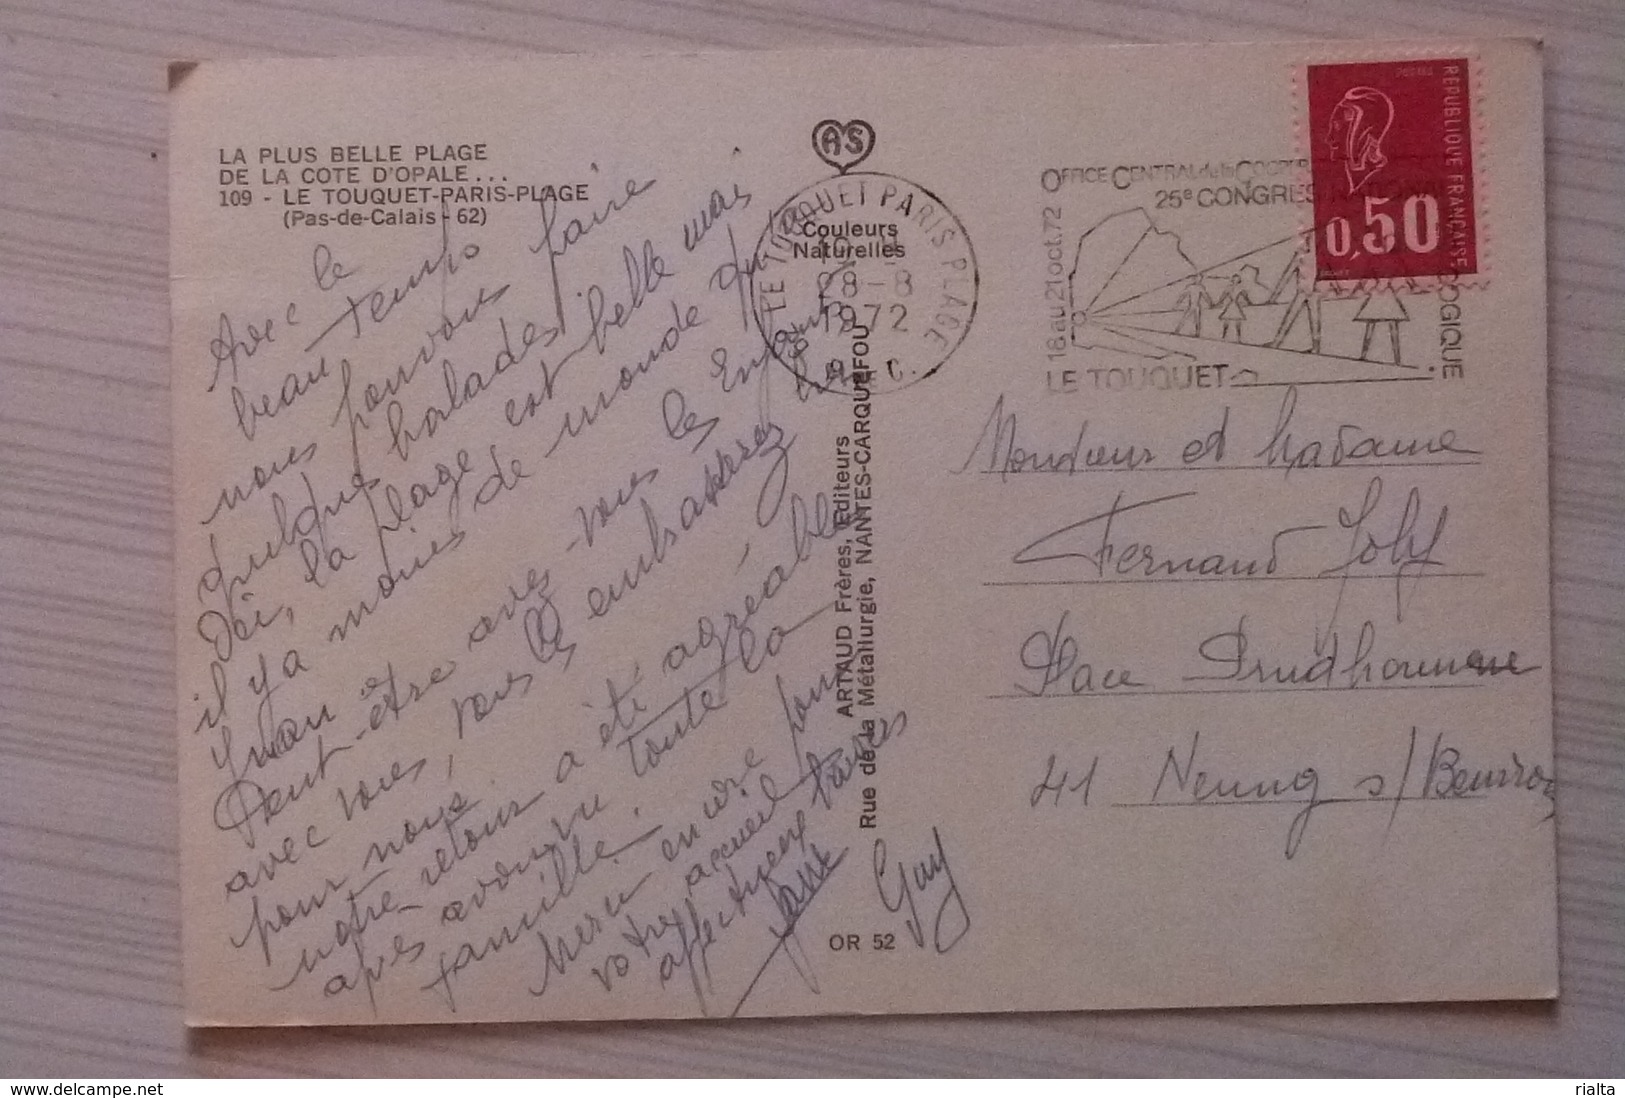 LA PLUS BELLE PLAGE
DE LA COTE D'OPALE...
109 - LE TOUQUET-PARIS-PLAGE
(Pas-de-Calais - 62)
Avec le
beau temps
nous pouvons faire
quelques balades
Ici, la plage est belle mais
il y a moins de monde qu'à
Peut-être avez-vous les Enfants
avec vous, vous les embrasserez bien
pour nous.
notre retour a été agréable
après avoir vu toute la
famille.
Merci encore pour
votre accueil
affectueux
Guy
AS
Couleurs
Naturelles
ARTAUD Frères, Editeurs
Rue de la Métallurgie, NANTES-CARQUEFOU
OR 52
LE TOUQUET PARIS PLAGE
28-8
1972
OFFICE CENTRAL de la COOPER
25e CONGRES NATIONAL
18 au 21 oct. 72
OGIQUE
LE TOUQUET
POSTES
REPUBLIQUE FRANÇAISE
0,50
Monsieur et Madame
Fernand Joly
Place Prudhomme
41 Neung s/Beuvron
www.delcampe.net
rialta